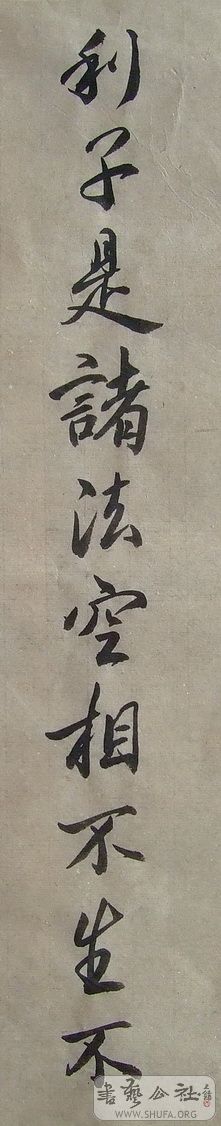 利子是諸法空相不生不
書藝公社
WWW.SHUFA.ORG